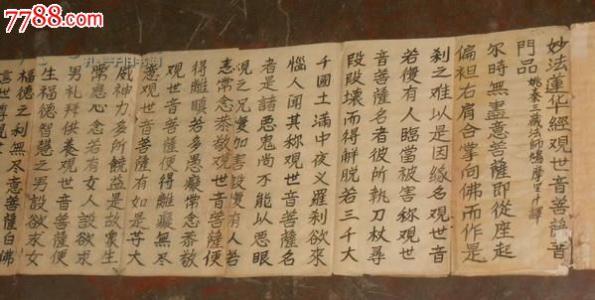 7788.com
妙法蓮华經觀世音菩薩普
門品 姚秦三藏法師鳩摩罗什譯
尔時無盡意菩薩即從座起
偏袒右肩合掌向佛而作是
刹之难以是因緣名觀世音
若復有人臨當被害称觀世
音菩薩名者彼所執刀杖尋
段段壊而得解脱若三千大
千國土满中夜义羅刹欲來
惱人聞其称觀世音菩薩名
者是諸悪鬼尚不能以悪眼
視之况复加害設復有人若
恚常念恭敬觀世音菩薩便
得離瞋若多愚癡常念恭敬
觀世音菩薩便得離癡無尽
意觀世音菩薩有如是等大
威神力多所饒益是故衆生
常應心念若有女人設欲求
男礼拜供養觀世音菩薩便
生福德智慧之男設欲求女
福德之利無尽意菩薩白佛
言世尊觀世